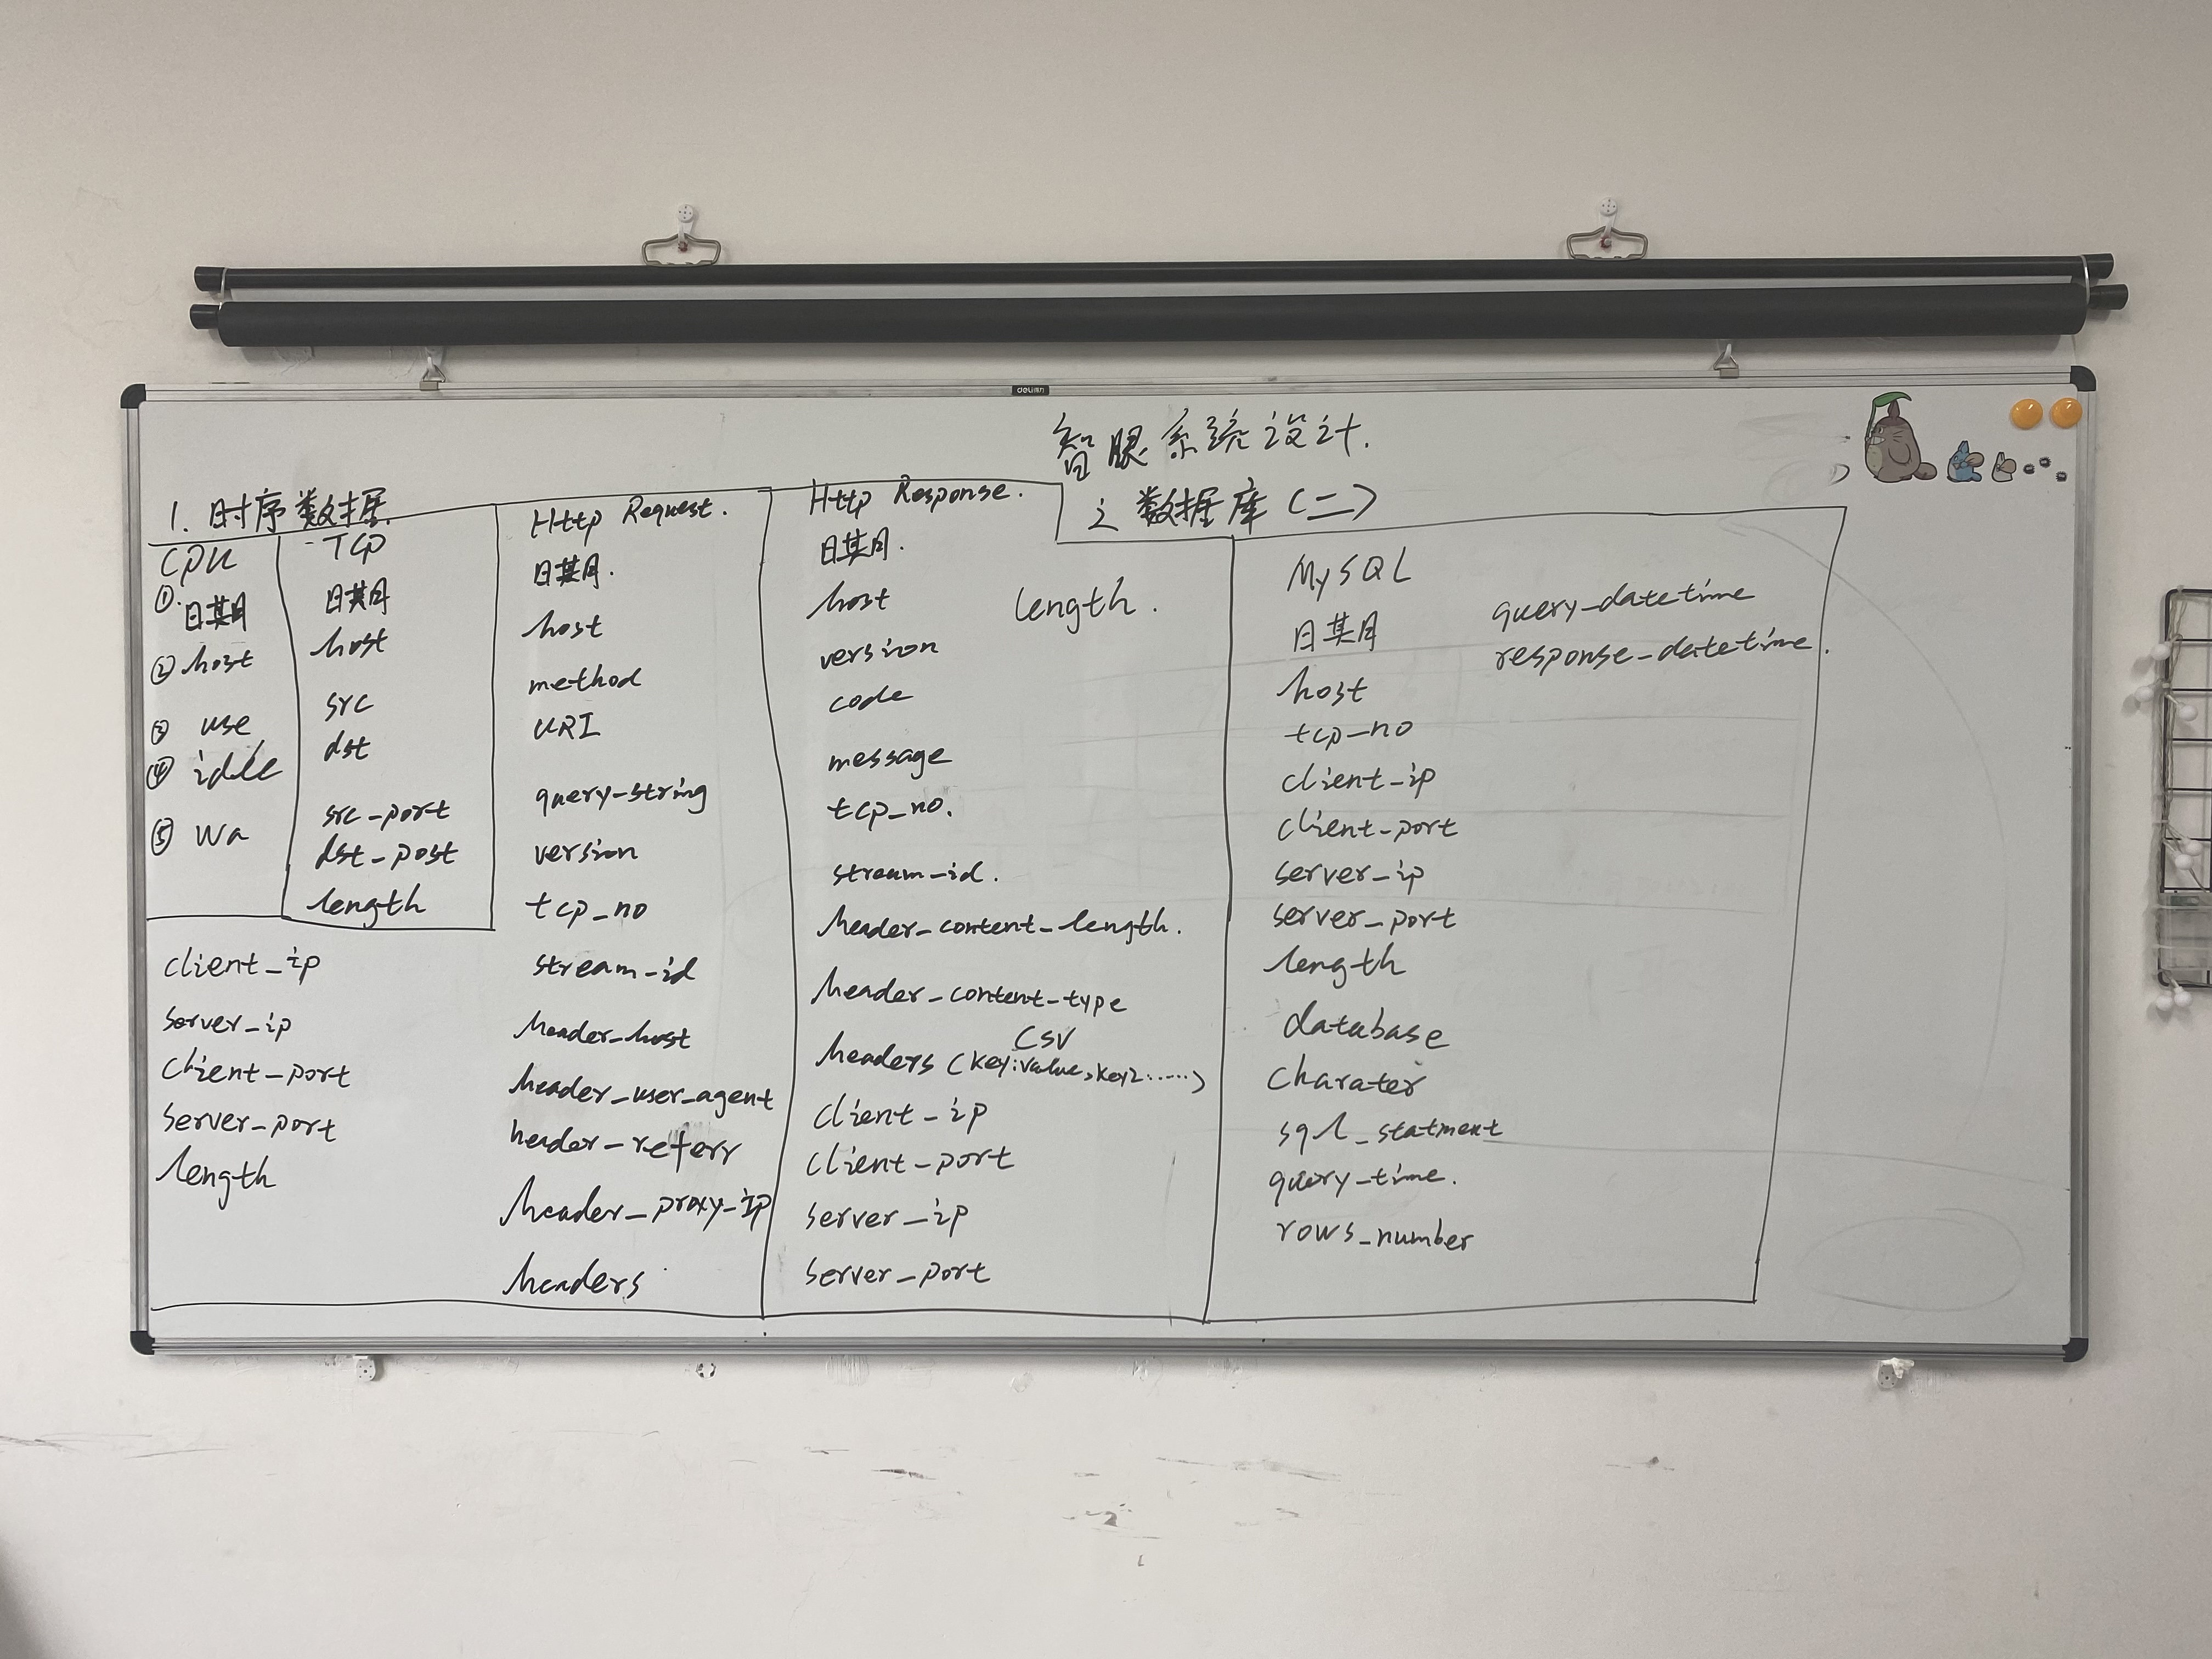 deli
智眼系统设计.
之数据库(二)
1. 时序数据
CPU
① 日期
② host
③ use
④ idle
⑤ wa
TCP
日期
host
src
dst
src_port
dst_post
length
Http Request.
日期.
host
method
URI
query_string
version
tcp_no
stream_id
header_host
header_user_agent
header_referr
header_proxy_ip
headers
client_ip
server_ip
client_port
server_port
length
Http Response.
日期.
host
version
code
message
tcp_no.
stream_id.
header_content_length.
header_content_type
CSV
headers (key:value,key2:.....)
client_ip
client_port
server_ip
server_port
length.
MySQL
日期
host
tcp_no
client_ip
client_port
server_ip
server_port
length
database
charater
sql_statment
query_time.
rows_number
query_datetime
response_datetime.